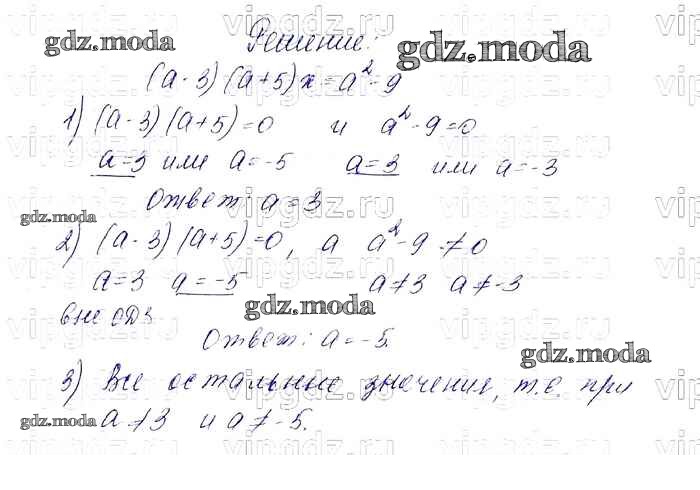 Решение:
(а-3)(а+5)x=a²-9
1) (а-3)(а+5)=0 и а²-9=0
а=3 или а=-5 а=3 или а=-3
Ответ: а=3
2) (а-3)(а+5)=0, а а²-9≠0
а=3 а=-5 а≠3 а≠-3
вне ОДЗ
Ответ: а=-5.
3) Все остальные значения, т.е. при
а≠3 и а≠-5.
gdz.moda
gdz.moda
gdz.moda
gdz.moda
gdz.moda
gdz.moda
vipgdz.ru